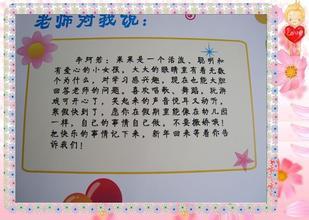 老师对我说：
李珂若：果果是一个活泼、聪明和
有爱心的小女孩，大大的眼睛里有着无数
个为什么，对学习感兴趣，现在也能大胆
回答老师的问题，喜欢唱歌、舞蹈，玩游
戏可开心了，笑起来的声音悦耳又动听，
寒假快到了，愿你在假期里能像在幼儿园
一样，自己的事情自己做，不要撒娇哦！
把快乐的事情记下来，新年回来等着你告
诉我们！